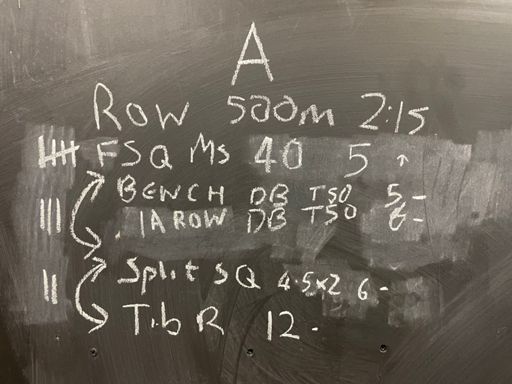 A
ROW 500m 2:15
卌 FSQ MS 40 5 ↑
||| BENCH DB T50 5-
1A ROW DB T50 6-
|| Split SQ 4.5x2 6-
Tib R 12-